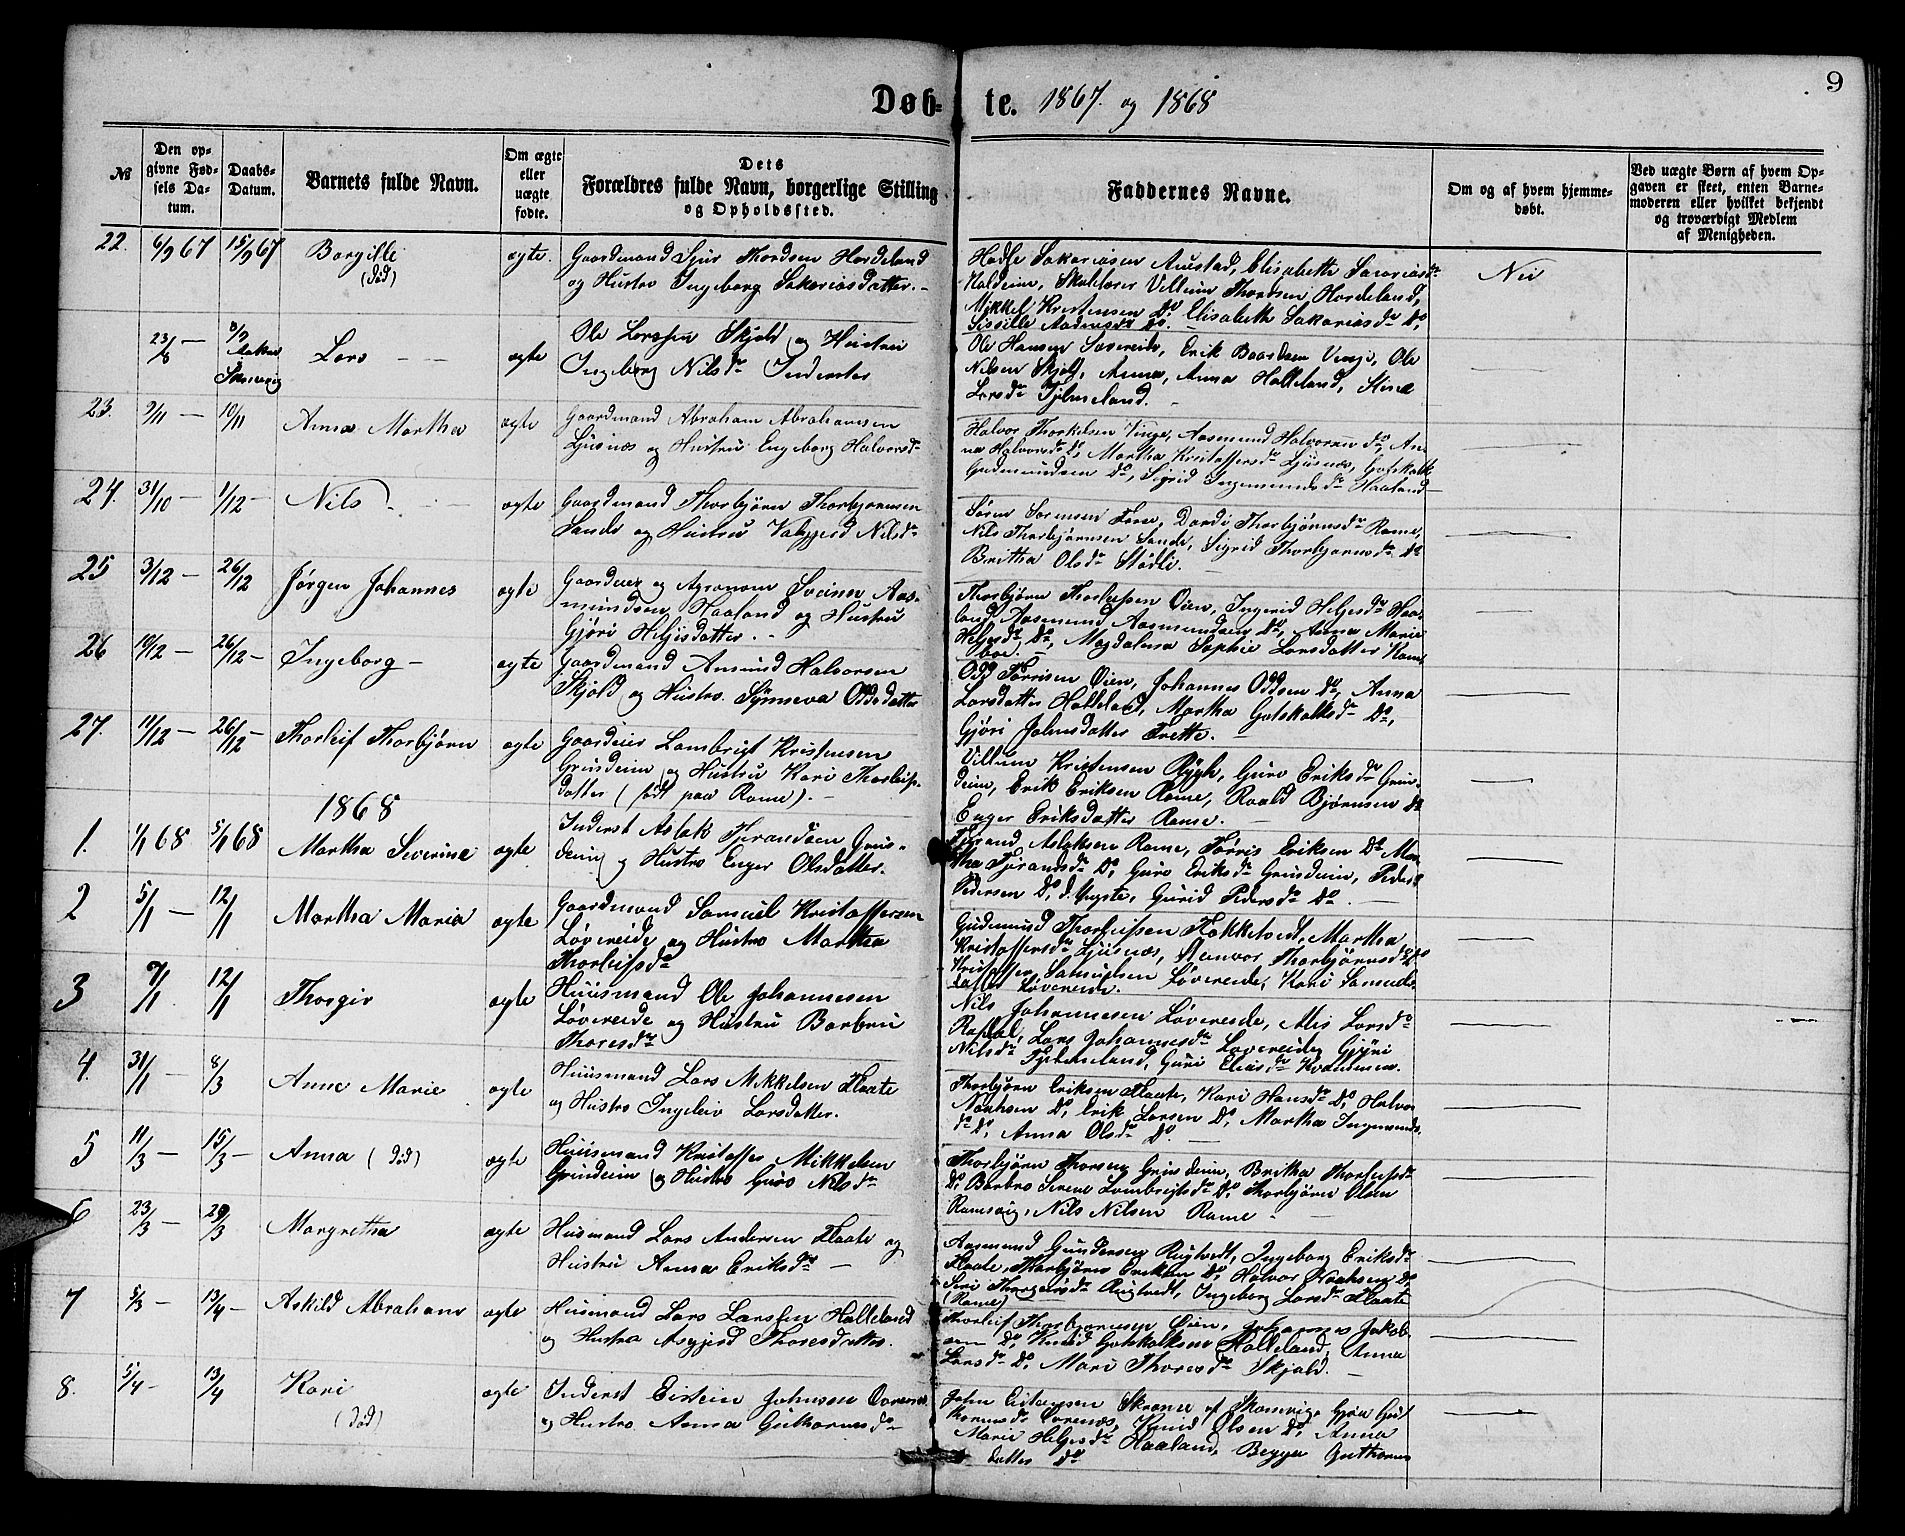 9
Døb-te. 1867. og 1868
№
Den op-
givne Fød-
sels Da-
tum.
Daabs-
Datum.
Barnets fulde Navn.
Om ægte
eller
uægte
fødte.
Dets
Forældres fulde Navn, borgerlige Stilling
og Opholdssted.
Faddernes Navne.
Om og af hvem hjemme-
døbt.
Ved uægte Børn af hvem Op-
gaven er skeet, enten Barne-
moderen eller hvilket bekjendt
og troværdigt Medlem
af Menigheden.
22. 6/9 67 15/9 67
(død)
ægte.
Gaardmand Sjur Thordsen Hordeland
og Hustro Ingeborg Sakariasdatter. –
Hadle Sakariasen Austad, Elisabeth
Skolelærer Villum Thordsen, Hordeland,
Mikkel Kristensen Do, Elisabeth Sakariasdr Do,
Nei
23/8 –
Lars – –
ægte
Ole Larssen Skjold og Hustru
Ingeborg Nilsdr Inderster
Ole Hansen Erik Baardsen Vinje, Ole
Nilsen Skjold, Anna, Anna Halleland,
Larsdr Fjelmeland. –
23. 9/11 – 10/11
Anna Martha
ægte
Gaardmand Abraham Abrahamsen
Ljusnæs og Hustru Engeborg Halvorsdr
Halvor Thorkelsen Vinje, Aasmund Halvorsen do, An-
na Halvorsdr do, Martha Kristoffersdr Ljusnæs, Gotskalk
Gudmundsen Do, Sigrid Ingemundsdr Haaland –
24. 31/10 – 1/12 –
Nils –
ægte
Gaardmand Thorbjørn Thorbjørnsen
Sande og Hustru Valgjerd Nilsdr
Søren Sørensen Dordi Thorbjørnsdr Rame,
Nils Thorbjørnsen Sande, Sigrid Thorbjørnsdr Do
Britha Olsdr Stødle. –
25 3/12 – 26/12
Jørgen Johannes
ægte
Gaardeier og Agronom Sveinn Aas-
mundsen Haaland og Hustru
Gjøri Helgisdatter. –
Thorbjørn Øien, Ingerid Helgesdr Haa-
land, Aasmund Aasmundsen Do, Anna Marie
Helgesdr Do, Magdalena Sophie Larsdatter
26 10/12 – 26/12 –
Ingeborg –
ægte
Gaardmand Amund Halvorsen
Skjold og Hustro. Synneva Oddsdatter
Odd Tørrisen Øien, Johannes Oddsen Do, Anna
Larsdatter Halleland, Martha Gotskalksdr Do,
Gjøri Johnsdatter Trette. –
27. 11/12 – 26/12 –
Thorleif Thorbjørn
ægte
Gaardeier Lambrigt Kristensen
Grindeim og Hustru Kari Thorleifs-
datter (født paa Rame). –
Villum Kristensen Rygh, Guro Eriksdr Grin-
deim, Erik Eriksen Rame, Roald Bjørnsen Do
Enger Eriksdatter Rame. –
1868
1. 1/1 68 5/1 68
Martha Severine
ægte
Inderst Aslak Tjerandsen Grin-
deim og Hustro Enger Olsdatter.
Tjerand Aslaksen Rame, Tørris Eriksen Do Mar-
tha Tjerandsdr Do, Guro Eriksdr Grindeim, Peder
Pedersen Do, d. Yngste, Gurid Pedersdr Do. –
2 5/1 – 12/1
Martha Maria
ægte
Gaardmand Samuel Kristoffersen
Løvereide og Hustro Martha
Thorleifsdr
Gudmund Thorleifsen Martha
Kristoffersdr Ljusnæs, Thorbjørnsdr Do
Kristoffer Samuelsen Løvereide, Kari Samuels
datter Løvereide.
3 7/1 12/1
Thorgir
ægte
Huusmand Ole Johannesen
Løvereide og Hustru Barbru
Thoresdr
Nils Johannesen Løvereide, Larsdr
Lars Johannesdr Løvereide, Gjøri
Nilsdr Fjelmeland, Guri Eliasdr
4. 31/1 – 8/3
Anne Marie
ægte
Huusmand Lars Mikkelsen Flaate
og Hustro Ingeleiv Larsdatter.
Thorbjørn Eriksen Flaate, Kari Hansdr Do, Halvor
Noahsen Do, Erik Larsen Do, Martha Ingemunds-
dr Do, Anna Olsdr Do. –
5 11/3 – 15/3 –
Anna (død)
ægte
Huusmand Kristoffer Mikkelsen
Grindeim og Hustro Guro Nilsdr
Thorbjørn Thorsen Grindeim, Britha Thorleifsdr
Do, Barbro Serine Lambrigtsdr Do, Thorbjørn Olsen
Ramsvig, Nils Nilsen Rame –
6 23/3 – 29/3
Margretha
ægte
Husmand Lars Andersen Flaate og
Hustru Anna Eriksdr –
Aasmund Gundersen Rygtvedt, Ingeborg Eriksdr
Flaate, Thorbjørn Eriksen Do, Halvor Noahsen Do,
Siri Thorgeirsdr Rygtvedt, Ingeborg Larsdr Flaate
(Rame)
7 5/3 – 13/4 –
Askild Abraham
ægte
Husmand Lars Larssen Halleland
og Hustru Asgjerd Thoresdatter.
Thorleif Thorbjørnsen Øien, Johannes Jakob-
sen Do, Knud Gotskalksen Halleland, Anna
Larsdr Do, Mari Thoresdr Skjold. –
8. 5/4 – 13/4
Kari
(død)
ægte
Inderst Eistein Johnsen
og Hustro Anna Guthormsdr –
John Eistensen
Knud Olsen Do, Anna
Marie Helgesdr Haaland, Guthorms
datter Do